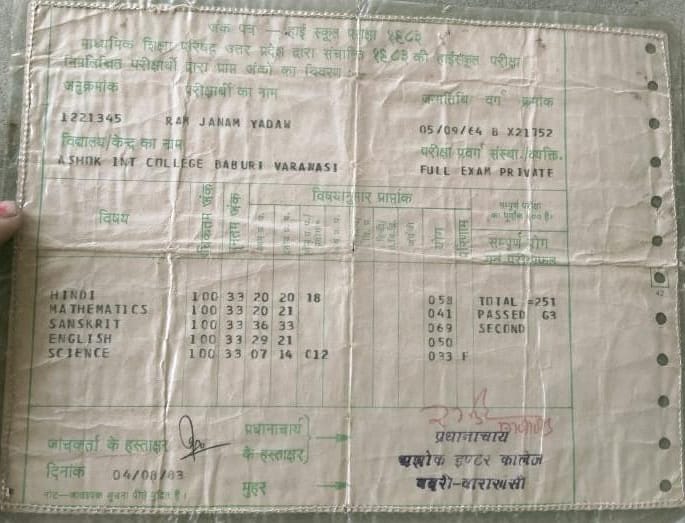 अंक पत्र — हाई स्कूल परीक्षा १९८३
माध्यमिक शिक्षा परिषद उत्तर प्रदेश द्वारा संचालित १९८३ की हाईस्कूल परीक्षा
निम्नलिखित परीक्षार्थी द्वारा प्राप्त अंकों का विवरण
अनुक्रमांक परीक्षार्थी का नाम जन्मतिथि वर्ग क्रमांक
1221345 RAM JANAM YADAW 05/09/64 B X21752
विद्यालय/केन्द्र का नाम परीक्षा प्रवर्ग संस्था/व्यक्ति.
ASHOK INT COLLEGE BABURI VARANASI FULL EXAM PRIVATE
विषय अधिकतम अंक न्यूनतम अंक विषयानुसार प्राप्तांक योग परिणाम सम्पूर्ण योग
HINDI 100 33 20 20 18 058 TOTAL =251
MATHEMATICS 100 33 20 21 041 PASSED G3
SANSKRIT 100 33 36 33 069 SECOND
ENGLISH 100 33 29 21 050
SCIENCE 100 33 07 14 C12 033 F
42
जांचकर्ता के हस्ताक्षर प्रधानाचार्य के हस्ताक्षर
प्रधानाचार्य
दिनांक 04/08/83 अशोक इण्टर कालेज
मुहर बबुरी-वाराणसी
नोट—आवश्यक सूचना पीछे मुद्रित है।